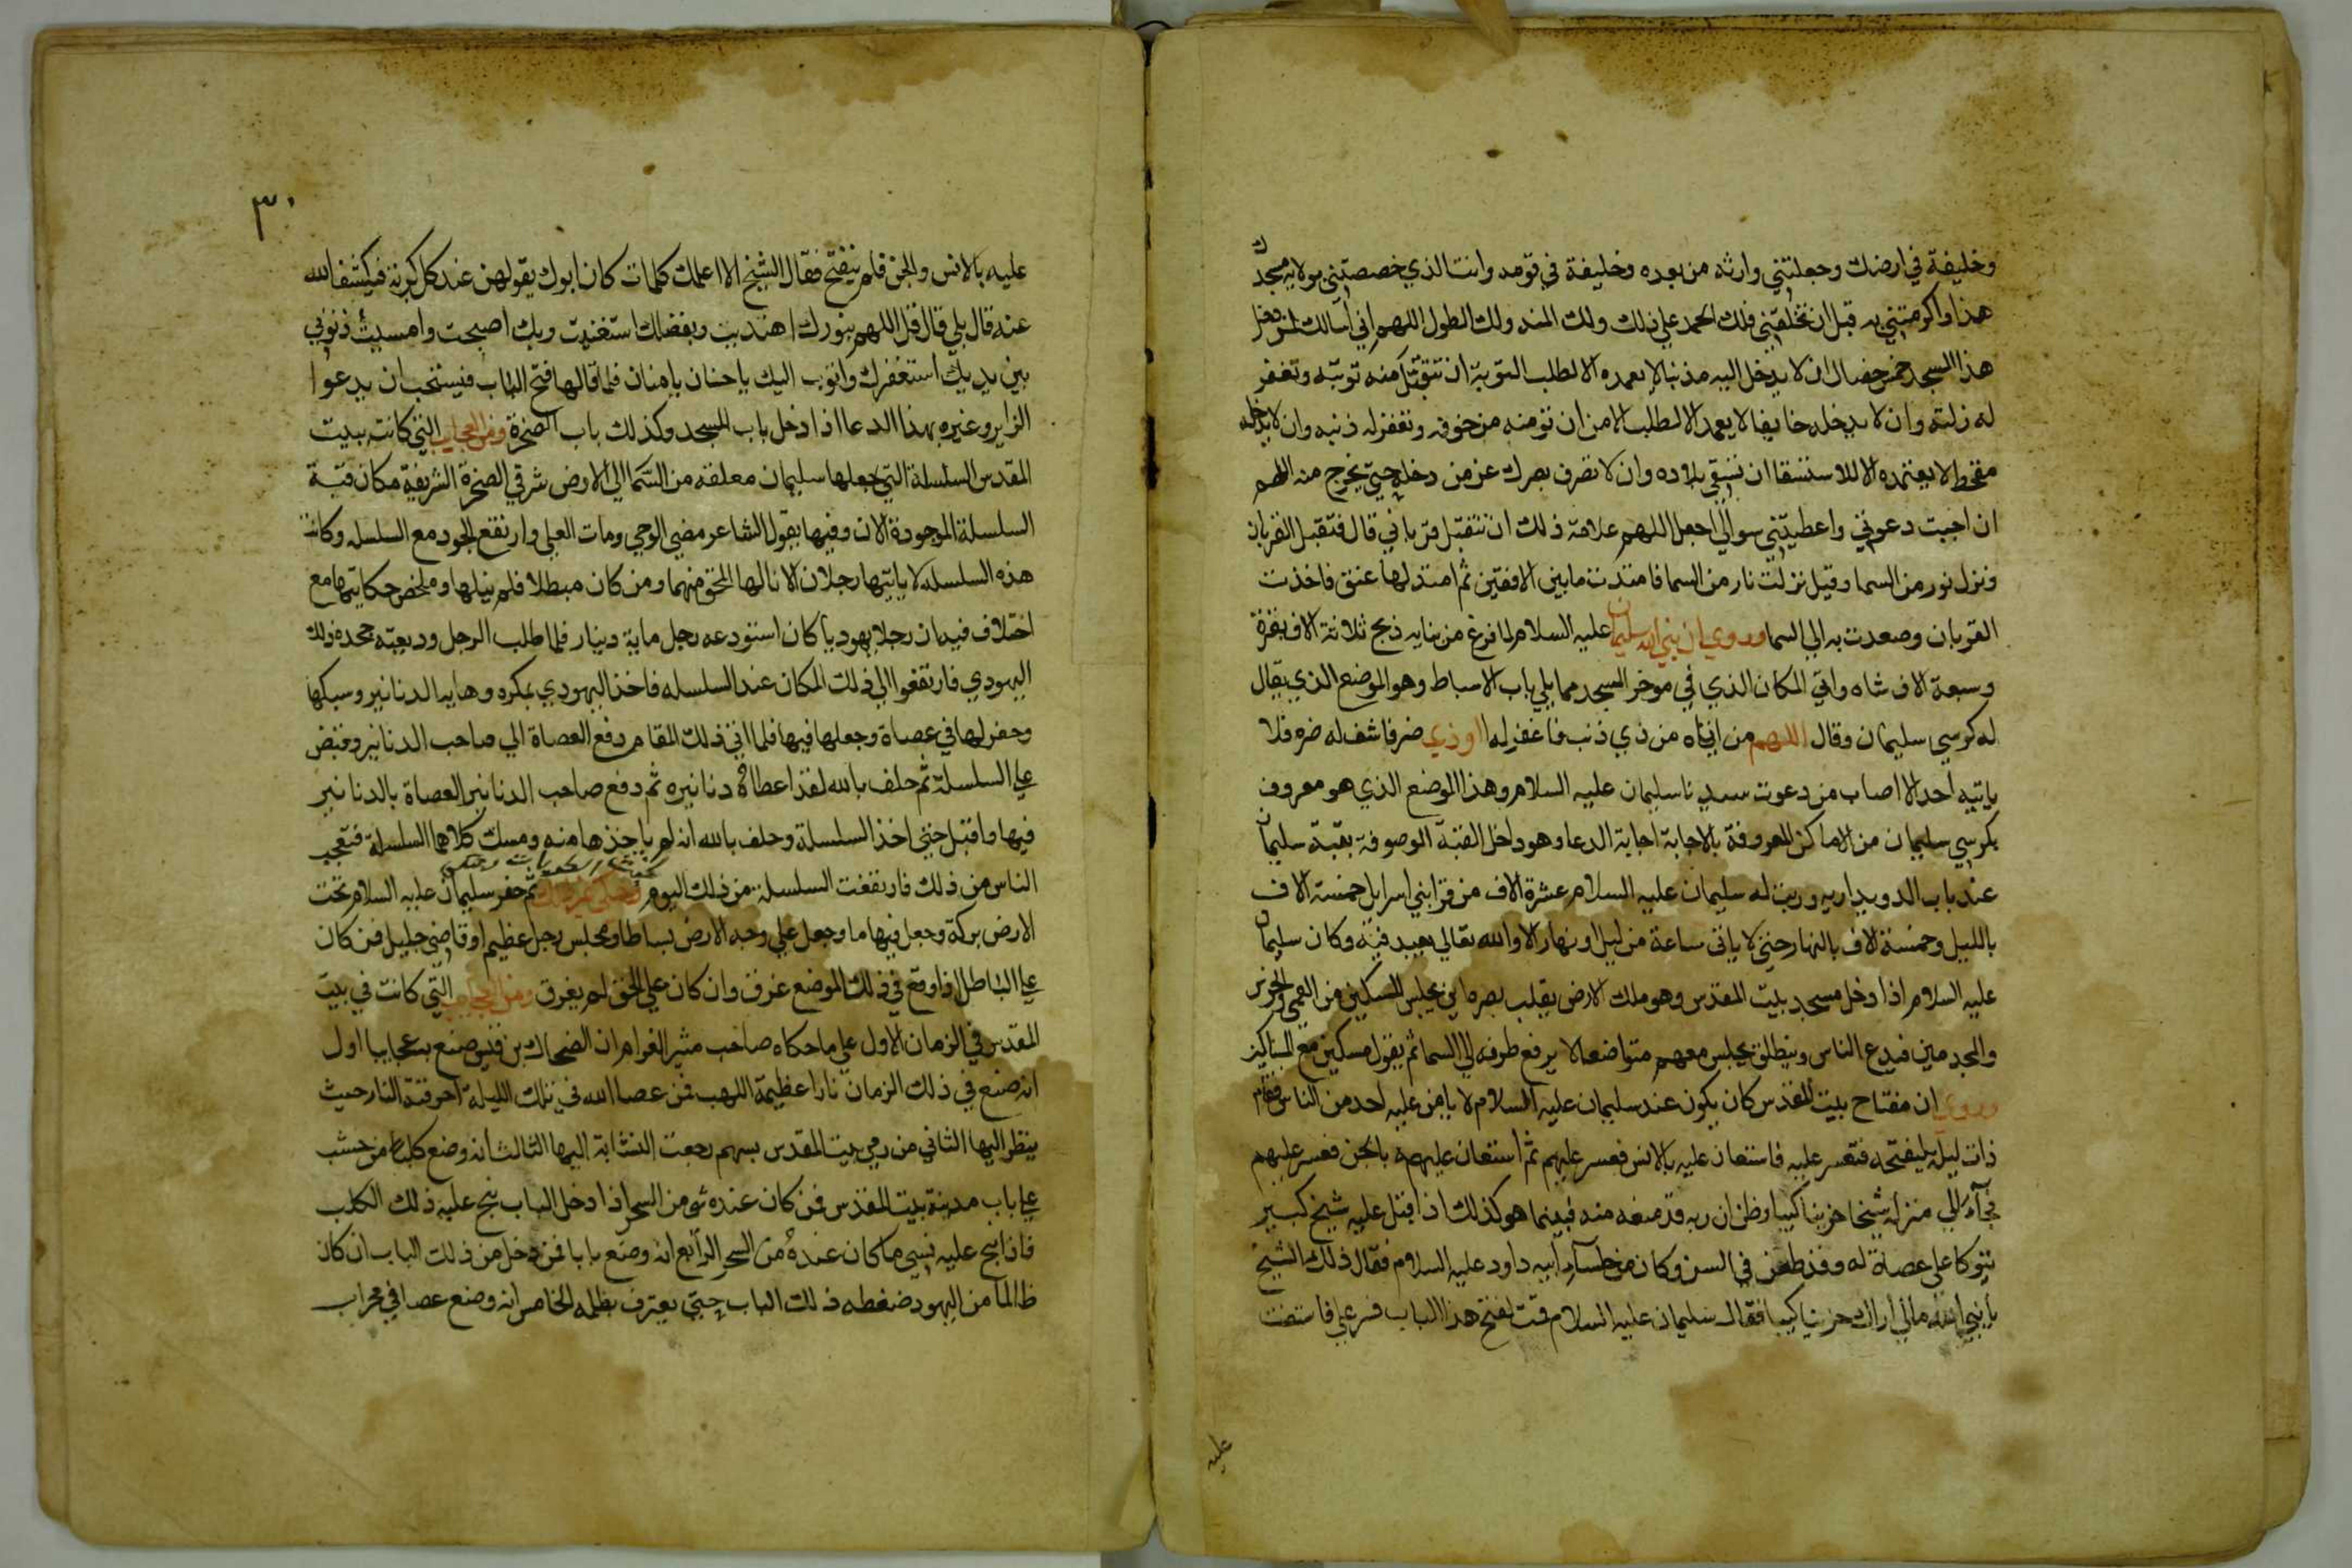 وخليفة في ارضك وجعلتني وارثه من بعده وخليفة في قومه وانت الذي خصصتني بولاية مسجدك
هذا واكرمتني به قبل ان تخلقني فلك الحمد علي ذلك ولك المنه ولك الطول اللهم اني اسالك لمن دخل
هذا المسجد خمس خصال ان لا يدخل اليه مذنب لا يعمده الا لطلب التوبة ان تتقبل منه توبته وتغفر
له زلته وان لا يدخله خايفا لا يعمد الا لطلب الامن ان تومنه من خوفه وتغفر له ذنبه وان لا يدخله
مقحط لا يعتمده الا للاستسقا ان تسقي بلاده وان لا تصرف بصرك عن من دخله حتي يخرج منه اللهم
ان اجبت دعوتي واعطيتني سوالي اجعل اللهم علامة ذلك ان تتقبل قرباني قال فتقبل القربان
ونزل نور من السما وقيل نزلت نار من السما فامتدت ما بين الافقين ثم امتد لها عنق فاخذت
القربان وصعدت به الي السما وروي ان نبي الله سليمان عليه السلام لما فرغ من بنايه ذبح ثلاثة الاف بقرة
وسبعة الاف شاه واتي المكان الذي في موخر المسجد مما يلي باب الاسباط وهو الموضع الذي يقال
له كرسي سليمان وقال اللهم من اتاه من ذي ذنب فاغفر له او ذي ضر فاشف له ضره فلا
ياتيه احد الا اصاب من دعوت سيدنا سليمان عليه السلام وهذا الموضع الذي هو معروف
بكرسي سليمان من الاماكن المعروفة بالاجابة اجابة الدعا وهو داخل القبة الموصوفة بقبة سليمان
عند باب الدويداريه ورتب له سليمان عليه السلام عشرة الاف من قرا بني اسرايل خمسة الاف
بالليل وخمسة الاف بالنهار حتي لا ياتي ساعة من ليل او نهار الا والله تعالي يعبد فيه وكان سليمان
عليه السلام اذا دخل مسجد بيت المقدس وهو ملك الارض يقلب بصره اين يجلس المسكين من العمي والخرس
والمجدمين فيدع الناس وينطلق يجلس معهم متواضعا لا يرفع طرفه الي السما ثم يقول مسكين مع المساكين
وروي ان مفتاح بيت المقدس كان يكون عند سليمان عليه السلام لا يامن عليه احد من الناس فقام
ذات ليلة ليفتحه فتعسر عليه فاستعان عليه بالانس فعسر عليهم ثم استعان عليهم بالجن فعسر عليهم
فجآء الي منزله شيخا حزينا كييبا وظن ان ربه قد منعه منه فبينما هو كذلك اذ اقبل عليه شيخ كبير
يتوكا علي عصاة له وقد طعن في السن وكان من جلسآء ابيه داود عليه السلام فقال ذلك الشيخ
يا نبي الله مالي اراك حزينا كييبا فقال سليمان عليه السلام قمت لفتح هذا الباب فعسر علي فاستعنت
عليه
٣٠
عليه بالانس والجن فلم ينفتح فقال الشيخ الا اعلمك كلمات كان ابوك يقولهن عند كل كربة فيكشف الله
عنه قال بلي قال قل اللهم بنورك اهتديت وبفضلك استغنيت وبك اصبحت وامسيت ذنوبي
بين يديك استغفرك واتوب اليك يا حنان يا منان فلما قالها فتح الباب فيستحب ان يدعوا
الزاير وغيره بهذا الدعا اذا دخل باب المسجد وكذلك باب الصخرة ومن العجايب التي كانت ببيت
المقدس السلسلة التي جعلها سليمان معلقه من السما الي الارض شرقي الصخرة الشريفة مكان قبة
السلسلة الموجودة الان وفيها يقول الشاعر مضي الوحي ومات العلي وارتفع الجود مع السلسله وكانت
هذه السلسله لا ياتيها رجلان الا نالها المحق منهما ومن كان مبطلا فلم ينلها وملخص حكايتها مع
اختلاف فيه ان رجلا يهوديا كان استودعه رجل ماية دينار فلما طلب الرجل وديعته جحده ذلك
اليهودي فارتفعوا الي ذلك المكان عند السلسله فاخذ اليهودي بمكره ودهايه الدنانير وسبكها
وحفر لها في عصاة وجعلها فيها فلما اتي ذلك المقام دفع العصاة الي صاحب الدنانير وقبض
علي السلسلة ثم حلف بالله لقد اعطاه دنانيره ثم دفع صاحب الدنانير العصاة بالدنانير
فيها واقبل حتي اخذ السلسلة وحلف بالله انه لم ياخذها منه ومسك كلاهما السلسلة فتعجب
الناس من ذلك فارتفعت السلسلة من ذلك اليوم ثم حفر سليمان عليه السلام تحت
الارض بركة وجعل فيها ما وجعل علي وجه الارض بساطا ومجلس رجل عظيم او قاضي جليل فمن كان
علي الباطل اذا وقع في ذلك الموضع غرق وان كان علي الحق لم يغرق ومن العجايب التي كانت في بيت
المقدس في الزمان الاول علي ما حكاه صاحب مثير الغرام ان الضحاك بن قيس صنع به عجايبا اول
انه صنع في ذلك الزمان نارا عظيمة اللهب فمن عصا الله في تلك الليلة احرقته النار حيث
ينظر اليها الثاني من رمي بيت المقدس بسهم رجعت النشابة اليها الثالث انه وضع كلبا من خشب
علي باب مدينة بيت المقدس فمن كان عنده شي من السحر اذا دخل الباب نبح عليه ذلك الكلب
فاذا نبح عليه نسي ما كان عنده من السحر الرابع انه وضع بابا فمن دخل من ذلك الباب ان كان
ظالما من اليهود ضغطه ذلك الباب حتي يعترف بظلمه الخامس انه وضع عصا في محراب